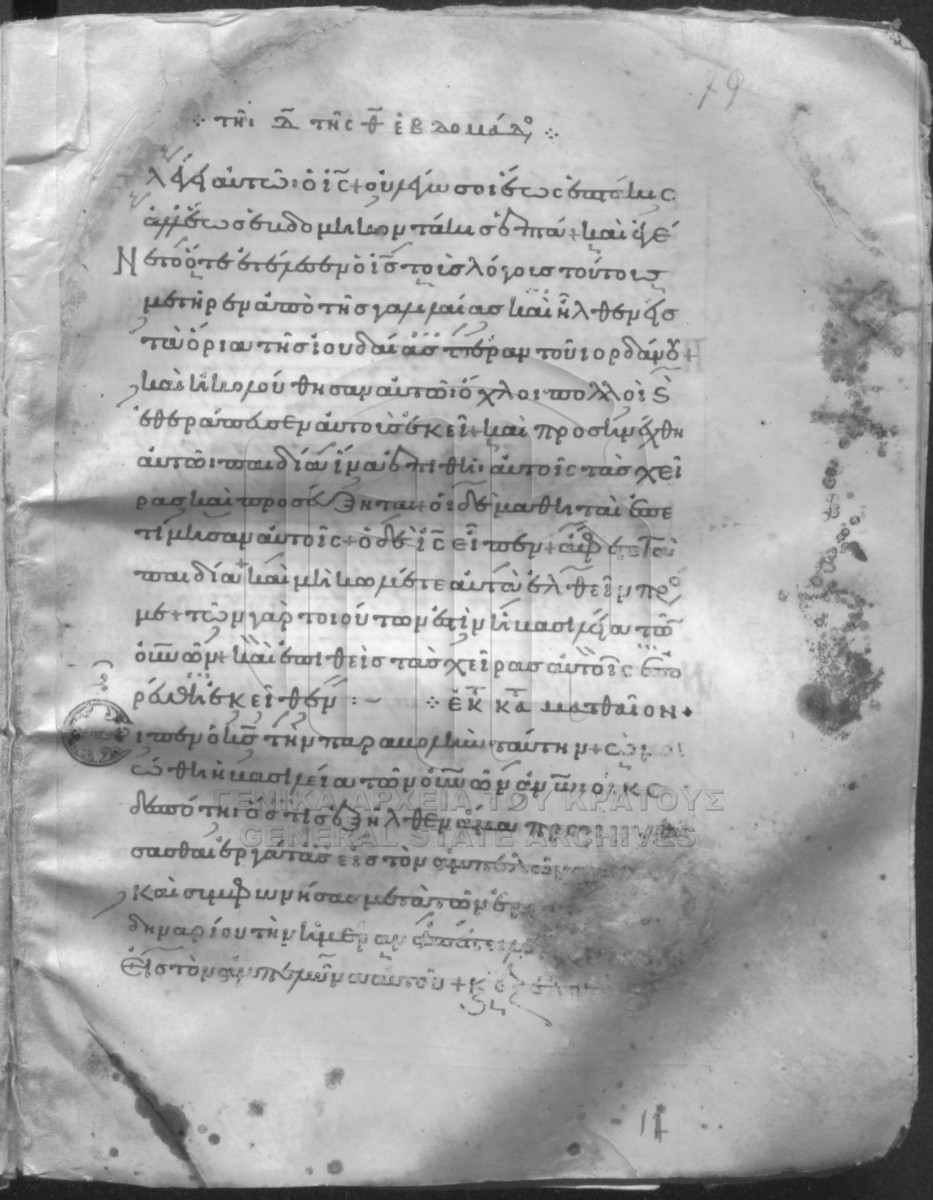 79
⁘ τῆι δ̄ τῆς θ̄ ἑβδομάδο ⁘
λέγει αὐτῶ· ὁ ῑς̄ + οὐ λέγω σοι ἕως ἑπτάκις
ἀλλ' ἕως ἑβδομηκοντάκις ἑπτά + καὶ ἐγέ
Νετο ὅτε ἐτέλεσεν ὁ ῑς̄ τοὺς λόγους τούτους
μετῆρεν ἀπὸ τῆς γαλιλαίας καὶ ἦλθεν εἰς
τὰ ὅρια τῆς ἰουδαίας πέραν τοῦ ἰορδάνου +
καὶ ἠκολούθησαν αὐτῶ ὄχλοι πολλοὶ ϗ̀
ἐθεράπευσεν αὐτοὺς ἐκεῖ + καὶ προσηνέχθη
αὐτῶι παιδία ἵνα ἐπιθῆι αὐτοῖς τὰς χεῖ
ρας καὶ προσεύξηται + οἱ δὲ μαθηταὶ ἐπε
τίμησαν αὐτοῖς + ὁ δὲ ῑς̄ εἶπεν + ἄφετε τὰ
παιδία καὶ μὴ κωλύετε αὐτὰ ἐλθεῖν πρό
με + τῶν γὰρ τοιούτων ἐστὶν ἡ βασιλεία τῶ
οὐνῶν + καὶ ἐπιθεὶς τὰς χεῖρας αὐτοῖς ἐπο
ρεύθη ἐκεῖθεν :~ ⁘ ἐκ τ κατ ματθαῖον +
ιπεν ὁ κ̄ς̄ τὴν παραβολὴν ταύτην + ὡμοι
ώθη ἡ βασιλεία τῶν οὐνῶν ἀνωι οἰκο
δεσπότηι ὅστις ἐξῆλθεν ἅμα πρωι
σασθαι ἐργάτας εἰς τὸν ἀμπελῶνα
καὶ συμφωνήσας μετὰ τῶν ἐργ
δηναρίου τὴν ἡμέραν ἀπέστειλε
Εἰς τὸν ἀμπελῶνα αὐτοῦ + κ
ΓΕΝΙΚΑ ΑΡΧΕΙΑ ΤΟΥ ΚΡΑΤΟΥΣ
GENERAL STATE ARCHIVES